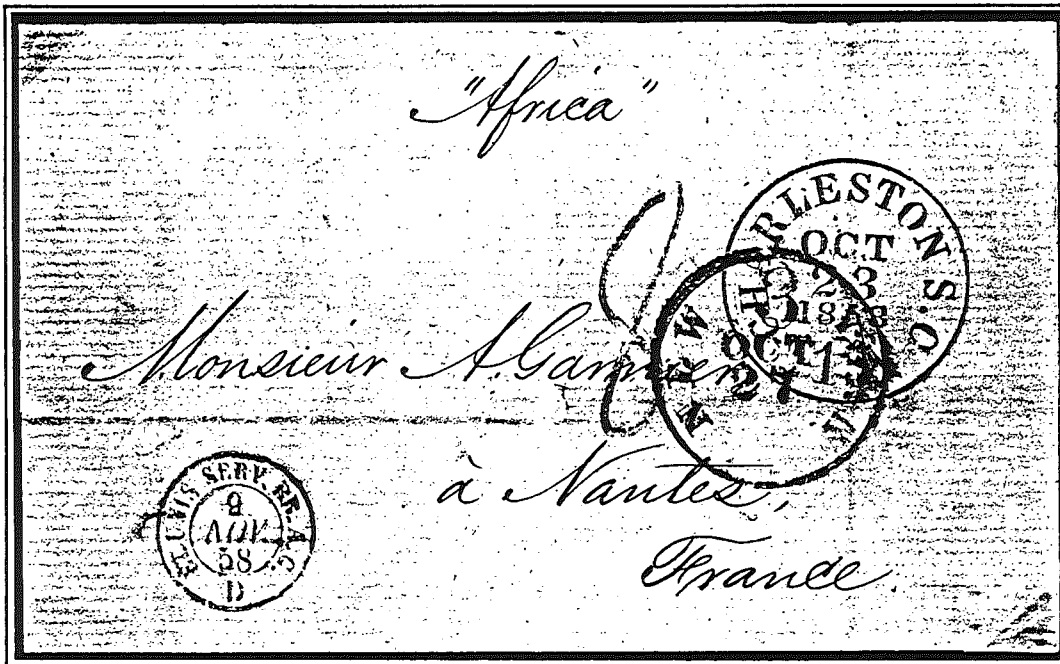 "Africa"
CHARLESTON S.C.
OCT
23
NEW
OCT
27
8
Monsieur A. Garnier
à Nantes,
France.
ET. UNIS SERV. BR. A. C.
9
NOV.
58
D